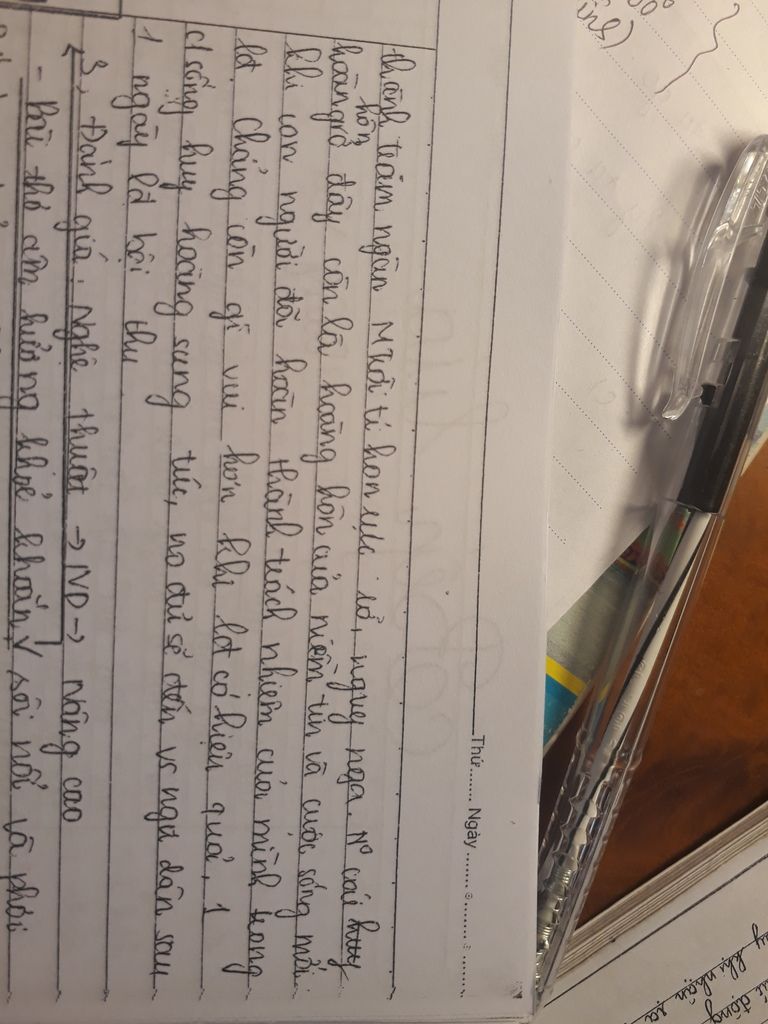 Thứ........ Ngày ........
thành trăm ngàn Mặt trời tí hon rực rỡ, nguy nga. Nº cái huy
hoàng ở đây còn là hoàng hôn của niềm tin và cuộc sống mới
hôn
khi con người đã hoàn thành trách nhiệm của mình trong
lđ. Chẳng còn gì vui hơn khi lđ có hiệu quả, 1
c/sống huy hoàng sung túc, no đủ sẽ đến vs ngư dân sau
1 ngày lđ bội thu
3, Đánh giá: Nghệ thuật → ND → nâng cao
- Bài thơ âm hưởng khoẻ khoắn, sôi nổi và phơi
khi nhận ra